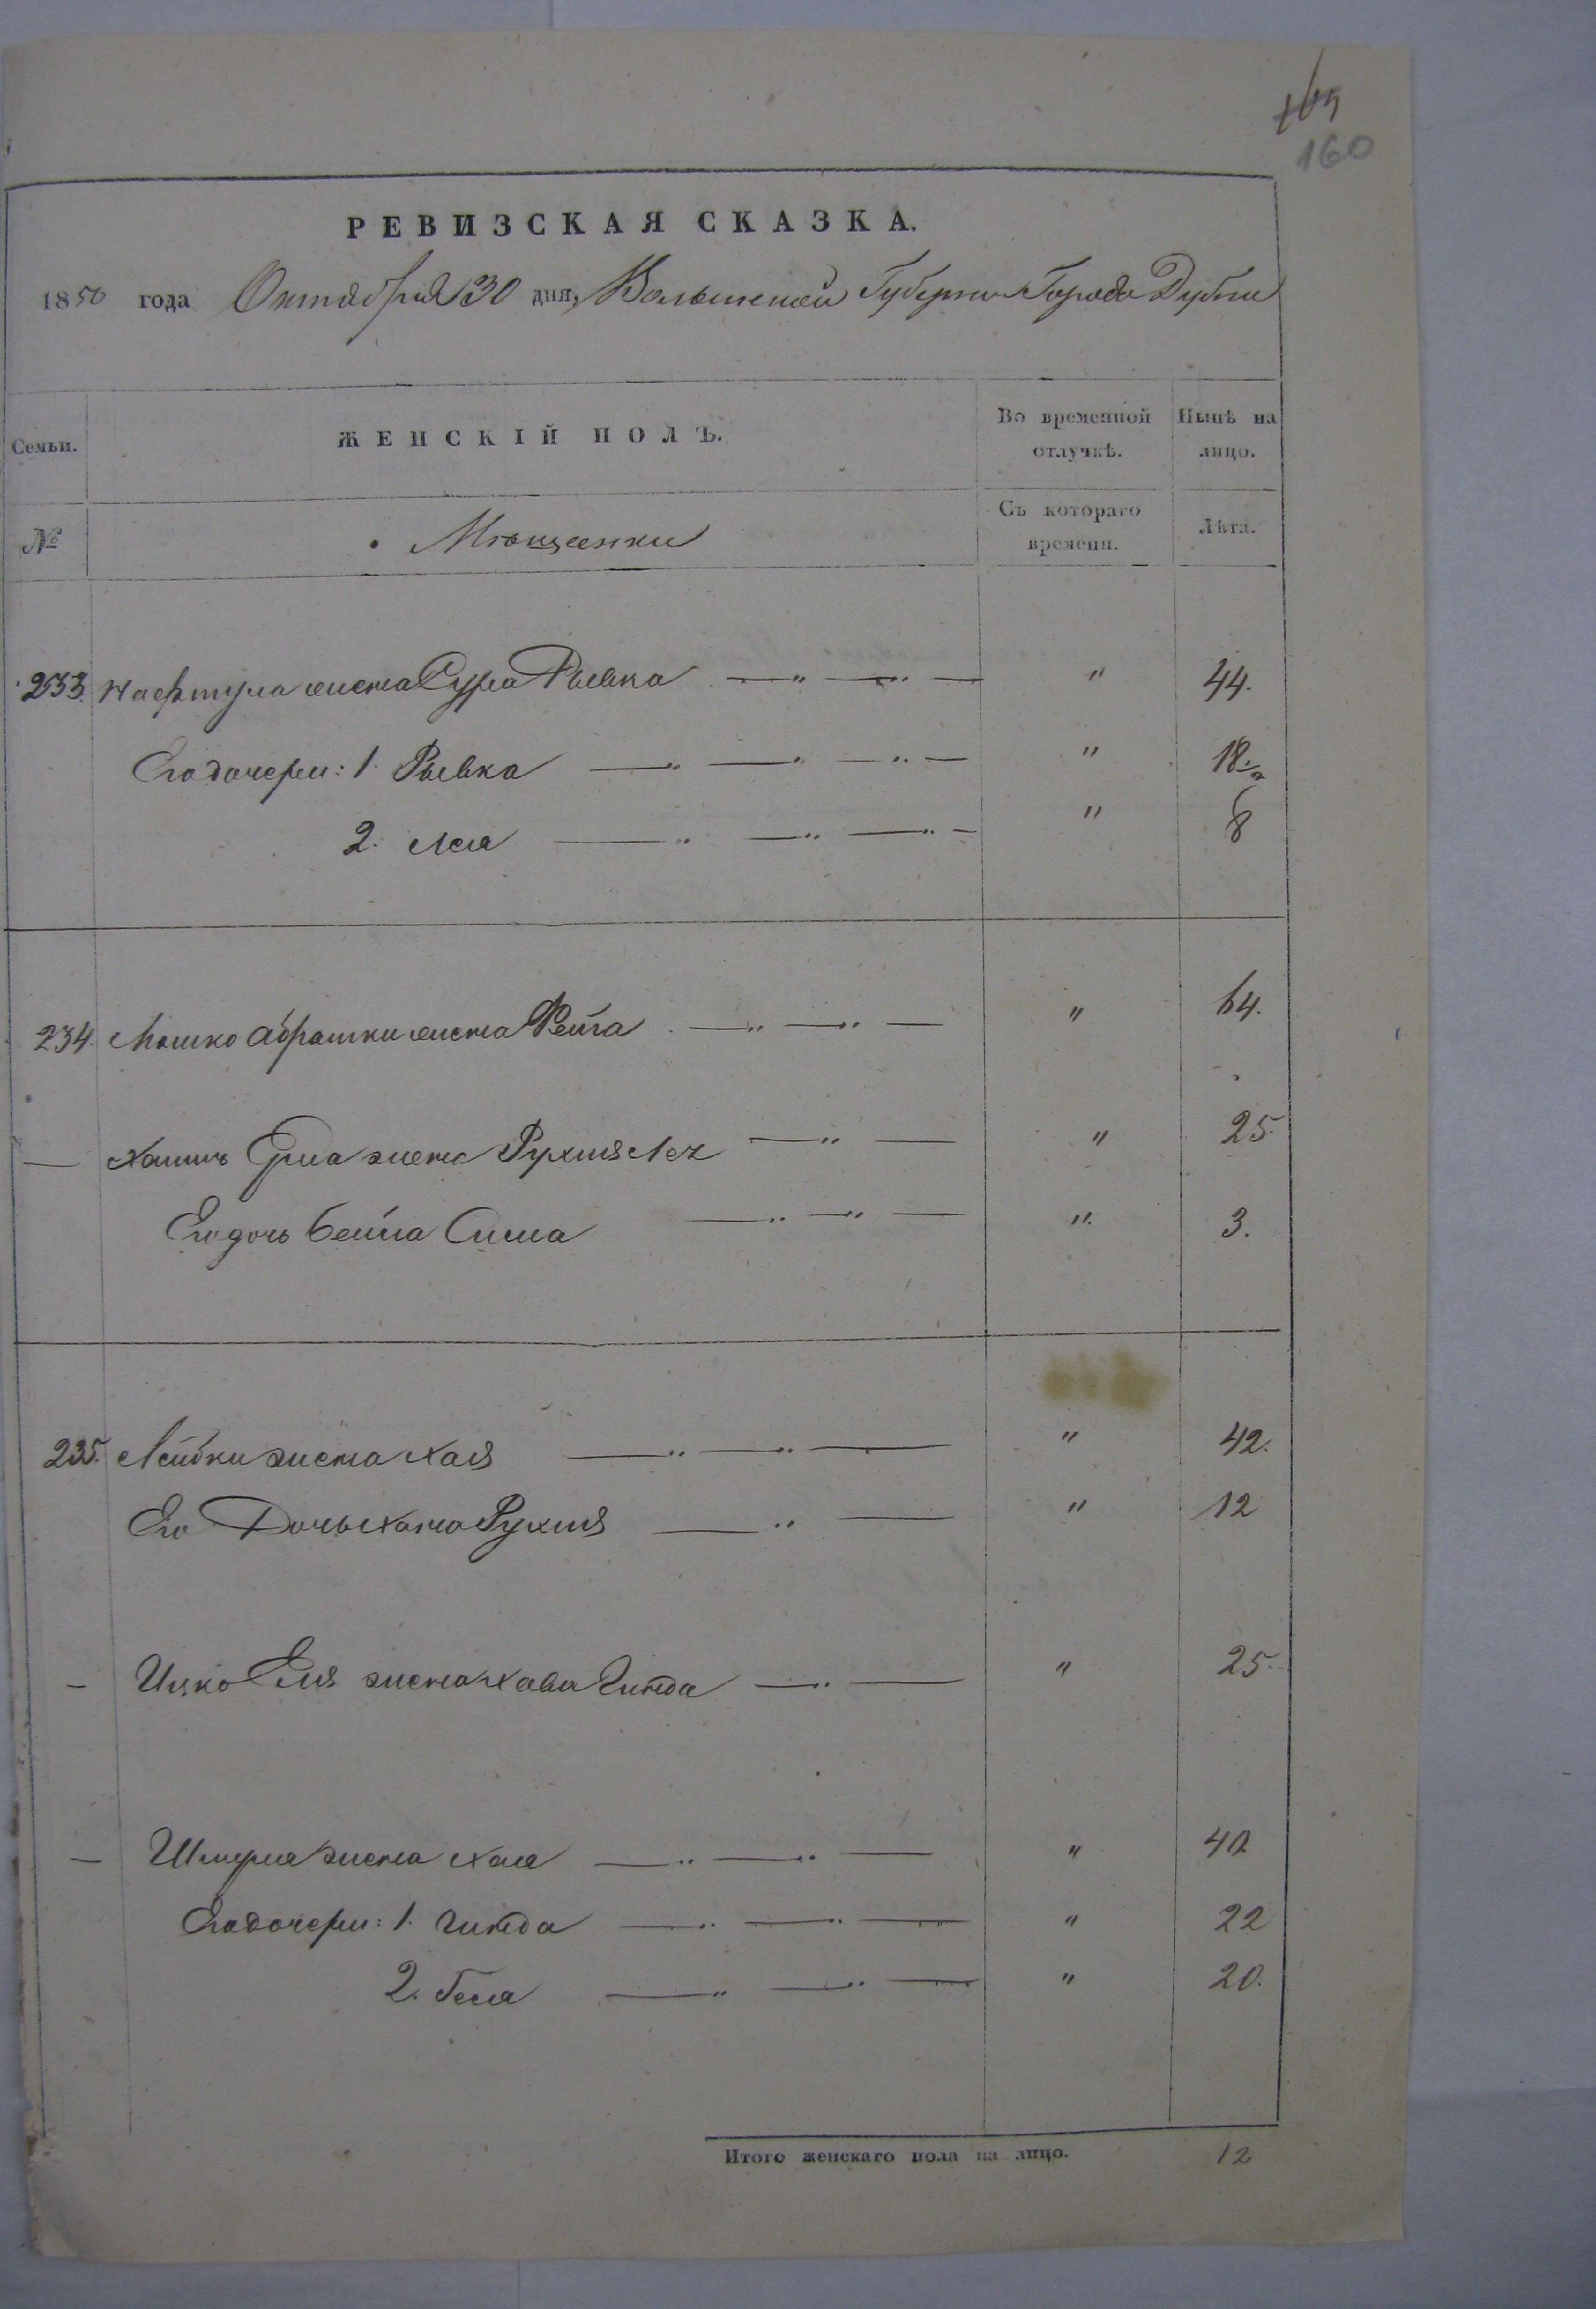 160
РЕВИЗСКАЯ СКАЗКА.
1850 года Октября 30 дня, Волынской Губернии Города Дубна
Семьи.
ЖЕНСКІЙ ПОЛЪ.
Во временной отлучкѣ.
Нынѣ на лицо.
№
Мѣщанки
Съ котораго времени.
Лѣта.
233. Нафтула жена Сура Рывка — „ — „ — „ 44.
Его дочери: 1. Рывка — „ — „ — „ — „ 18.
2. Лея — „ — „ — „ — „ 8
234. Мошко Абрашки жена Фейга — „ — „ — „ 64.
— жена Рухля Лея — „ — „ 25.
Его дочь Бейла Сима — „ — „ — „ 3.
235. Лейбки жена Хая — „ — „ — „ 42.
Его Дочь Хана Рухля — „ — „ 12
— Ицко Еля жена Хава Гитда — „ — „ 25.
— Шмуля жена Хая — „ — „ — „ 40.
Его дочери: 1. Гитда — „ — „ — „ 22
2. Геля — „ — „ — „ 20.
Итого женскаго пола на лицо. 12